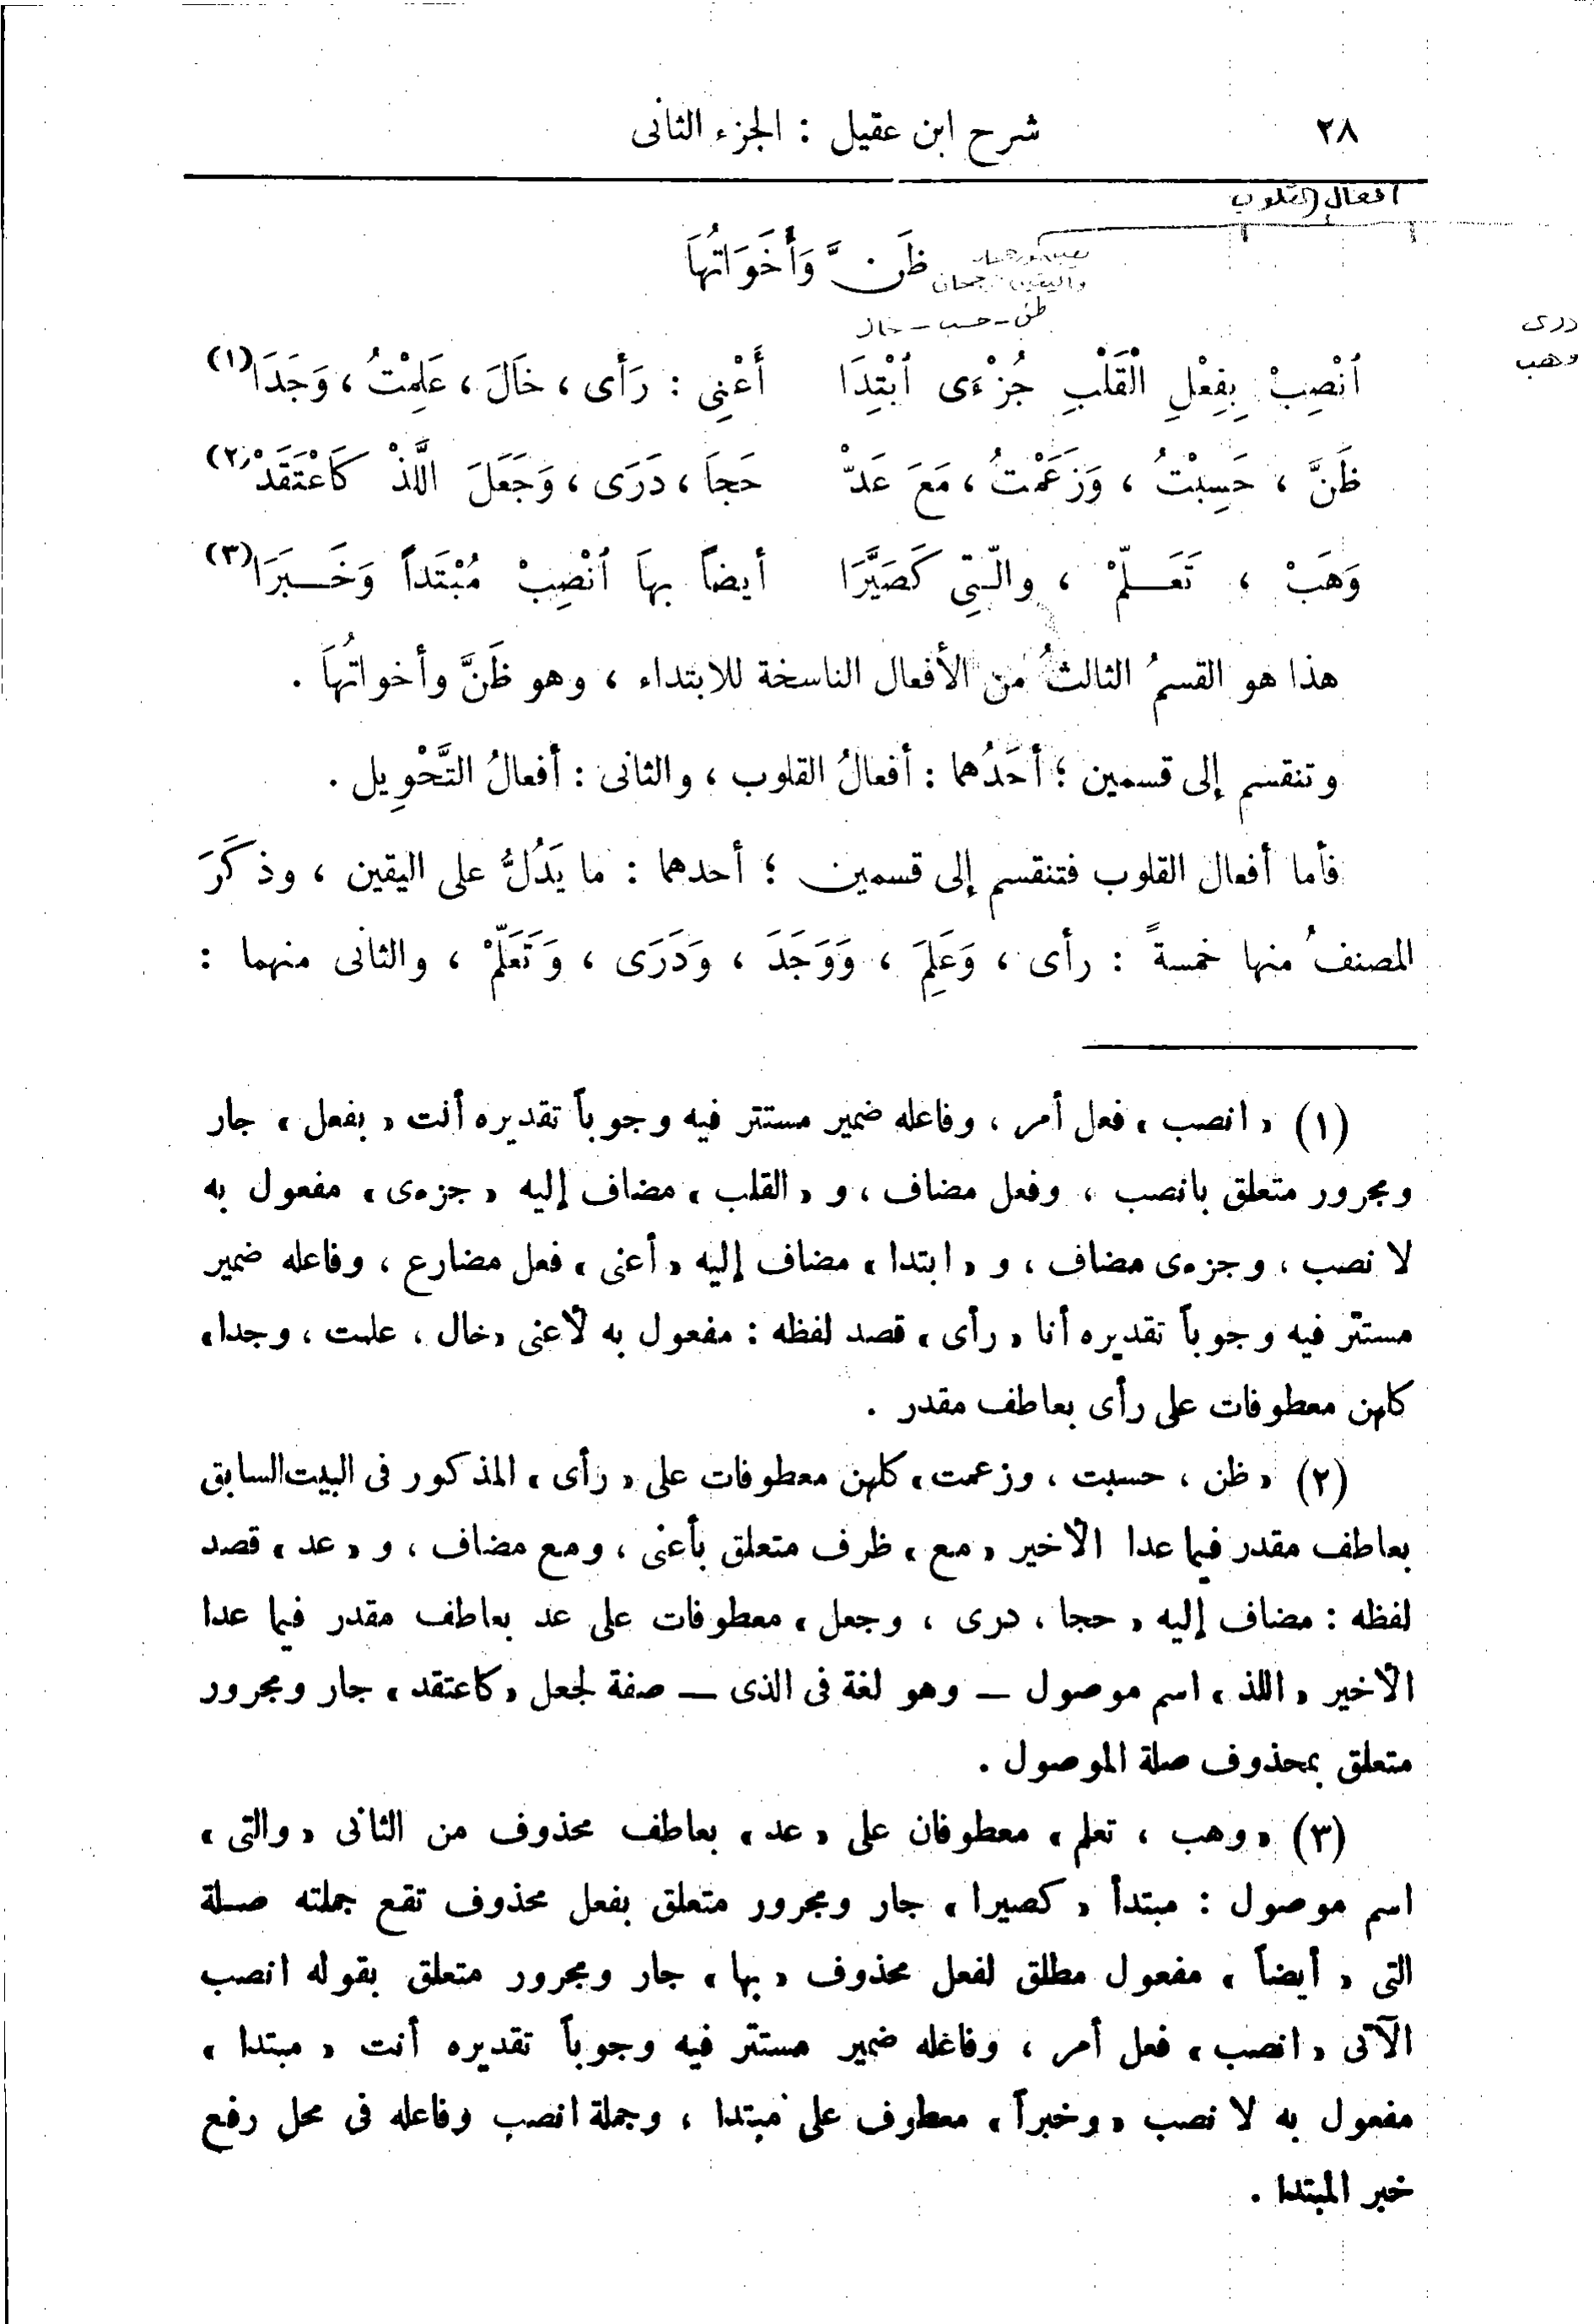 ٢٨ شرح ابن عقيل : الجزء الثانى
أفعال القلوب
ظَنَّ وَأَخَوَاتُهَا
ظن - حسب - خال
درى
وهب
اُنْصِبْ بِفِعْلِ الْقَلْبِ جُزْءَى اُبْتِدَا أَعْنِى : رَأى ، خَالَ ، عَلِمْتُ ، وَجَدَا (١)
ظَنَّ ، حَسِبْتُ ، وَزَعَمْتُ ، مَعَ عَدّْ حَجَا ، دَرَى ، وَجَعَلَ اللَّذْ كَاعْتَقَدْ (٢)
وَهَبْ ، تَعَلَّمْ ، والَّتِى كَصَيَّرَا أيضاً بهَا اُنْصِبْ مُبْتَداً وَخَبَرَا (٣)
هذا هو القسمُ الثالثُ من الأفعال الناسخة للابتداء ، وهو ظَنَّ وأخواتُهَا .
وتنقسم إلى قسمين ؛ أحَدُهما : أفعالُ القلوب ، والثانى : أفعالُ التَّحْوِيل .
فأما أفعال القلوب فتنقسم إلى قسمين ؛ أحدهما : ما يَدُلُّ على اليقين ، وذكَرَ
المصنفُ منها خمسةً : رأى ، وَعَلِمَ ، وَوَجَدَ ، وَدَرَى ، وَتَعَلَّمْ ، والثانى منهما :
(١) « انصب » فعل أمر ، وفاعله ضمير مستتر فيه وجوباً تقديره أنت « بفعل » جار
ومجرور متعلق بانصب ، وفعل مضاف ، و « القلب » مضاف إليه « جزءى » مفعول به
لانصب ، وجزءى مضاف ، و « ابتدا » مضاف إليه « أعنى » فعل مضارع ، وفاعله ضمير
مستتر فيه وجوباً تقديره أنا « رأى » قصد لفظه : مفعول به لأعنى « خال ، علمت ، وجدا »
كلهن معطوفات على رأى بعاطف مقدر .
(٢) « ظن ، حسبت ، وزعمت » كلهن معطوفات على « رأى » المذكور فى البيت السابق
بعاطف مقدر فيما عدا الأخير « مع » ظرف متعلق بأعنى ، ومع مضاف ، و « عد » قصد
لفظه : مضاف إليه « حجا ، درى ، وجعل » معطوفات على عد بعاطف مقدر فيما عدا
الأخير « اللذ » اسم موصول — وهو لغة فى الذى — صفة لجعل « كاعتقد » جار ومجرور
متعلق بمحذوف صلة الموصول .
(٣) « وهب ، تعلم » معطوفان على « عد » بعاطف محذوف من الثانى « والتى »
اسم موصول : مبتدأ « كصيرا » جار ومجرور متعلق بفعل محذوف تقع جملته صلة
التى « أيضاً » مفعول مطلق لفعل محذوف « بها » جار ومجرور متعلق بقوله انصب
الآتى « انصب » فعل أمر ، وفاعله ضمير مستتر فيه وجوباً تقديره أنت « مبتدا »
مفعول به لانصب « وخبراً » معطوف على مبتدا ، وجملة انصب وفاعله فى محل رفع
خبر المبتدا .